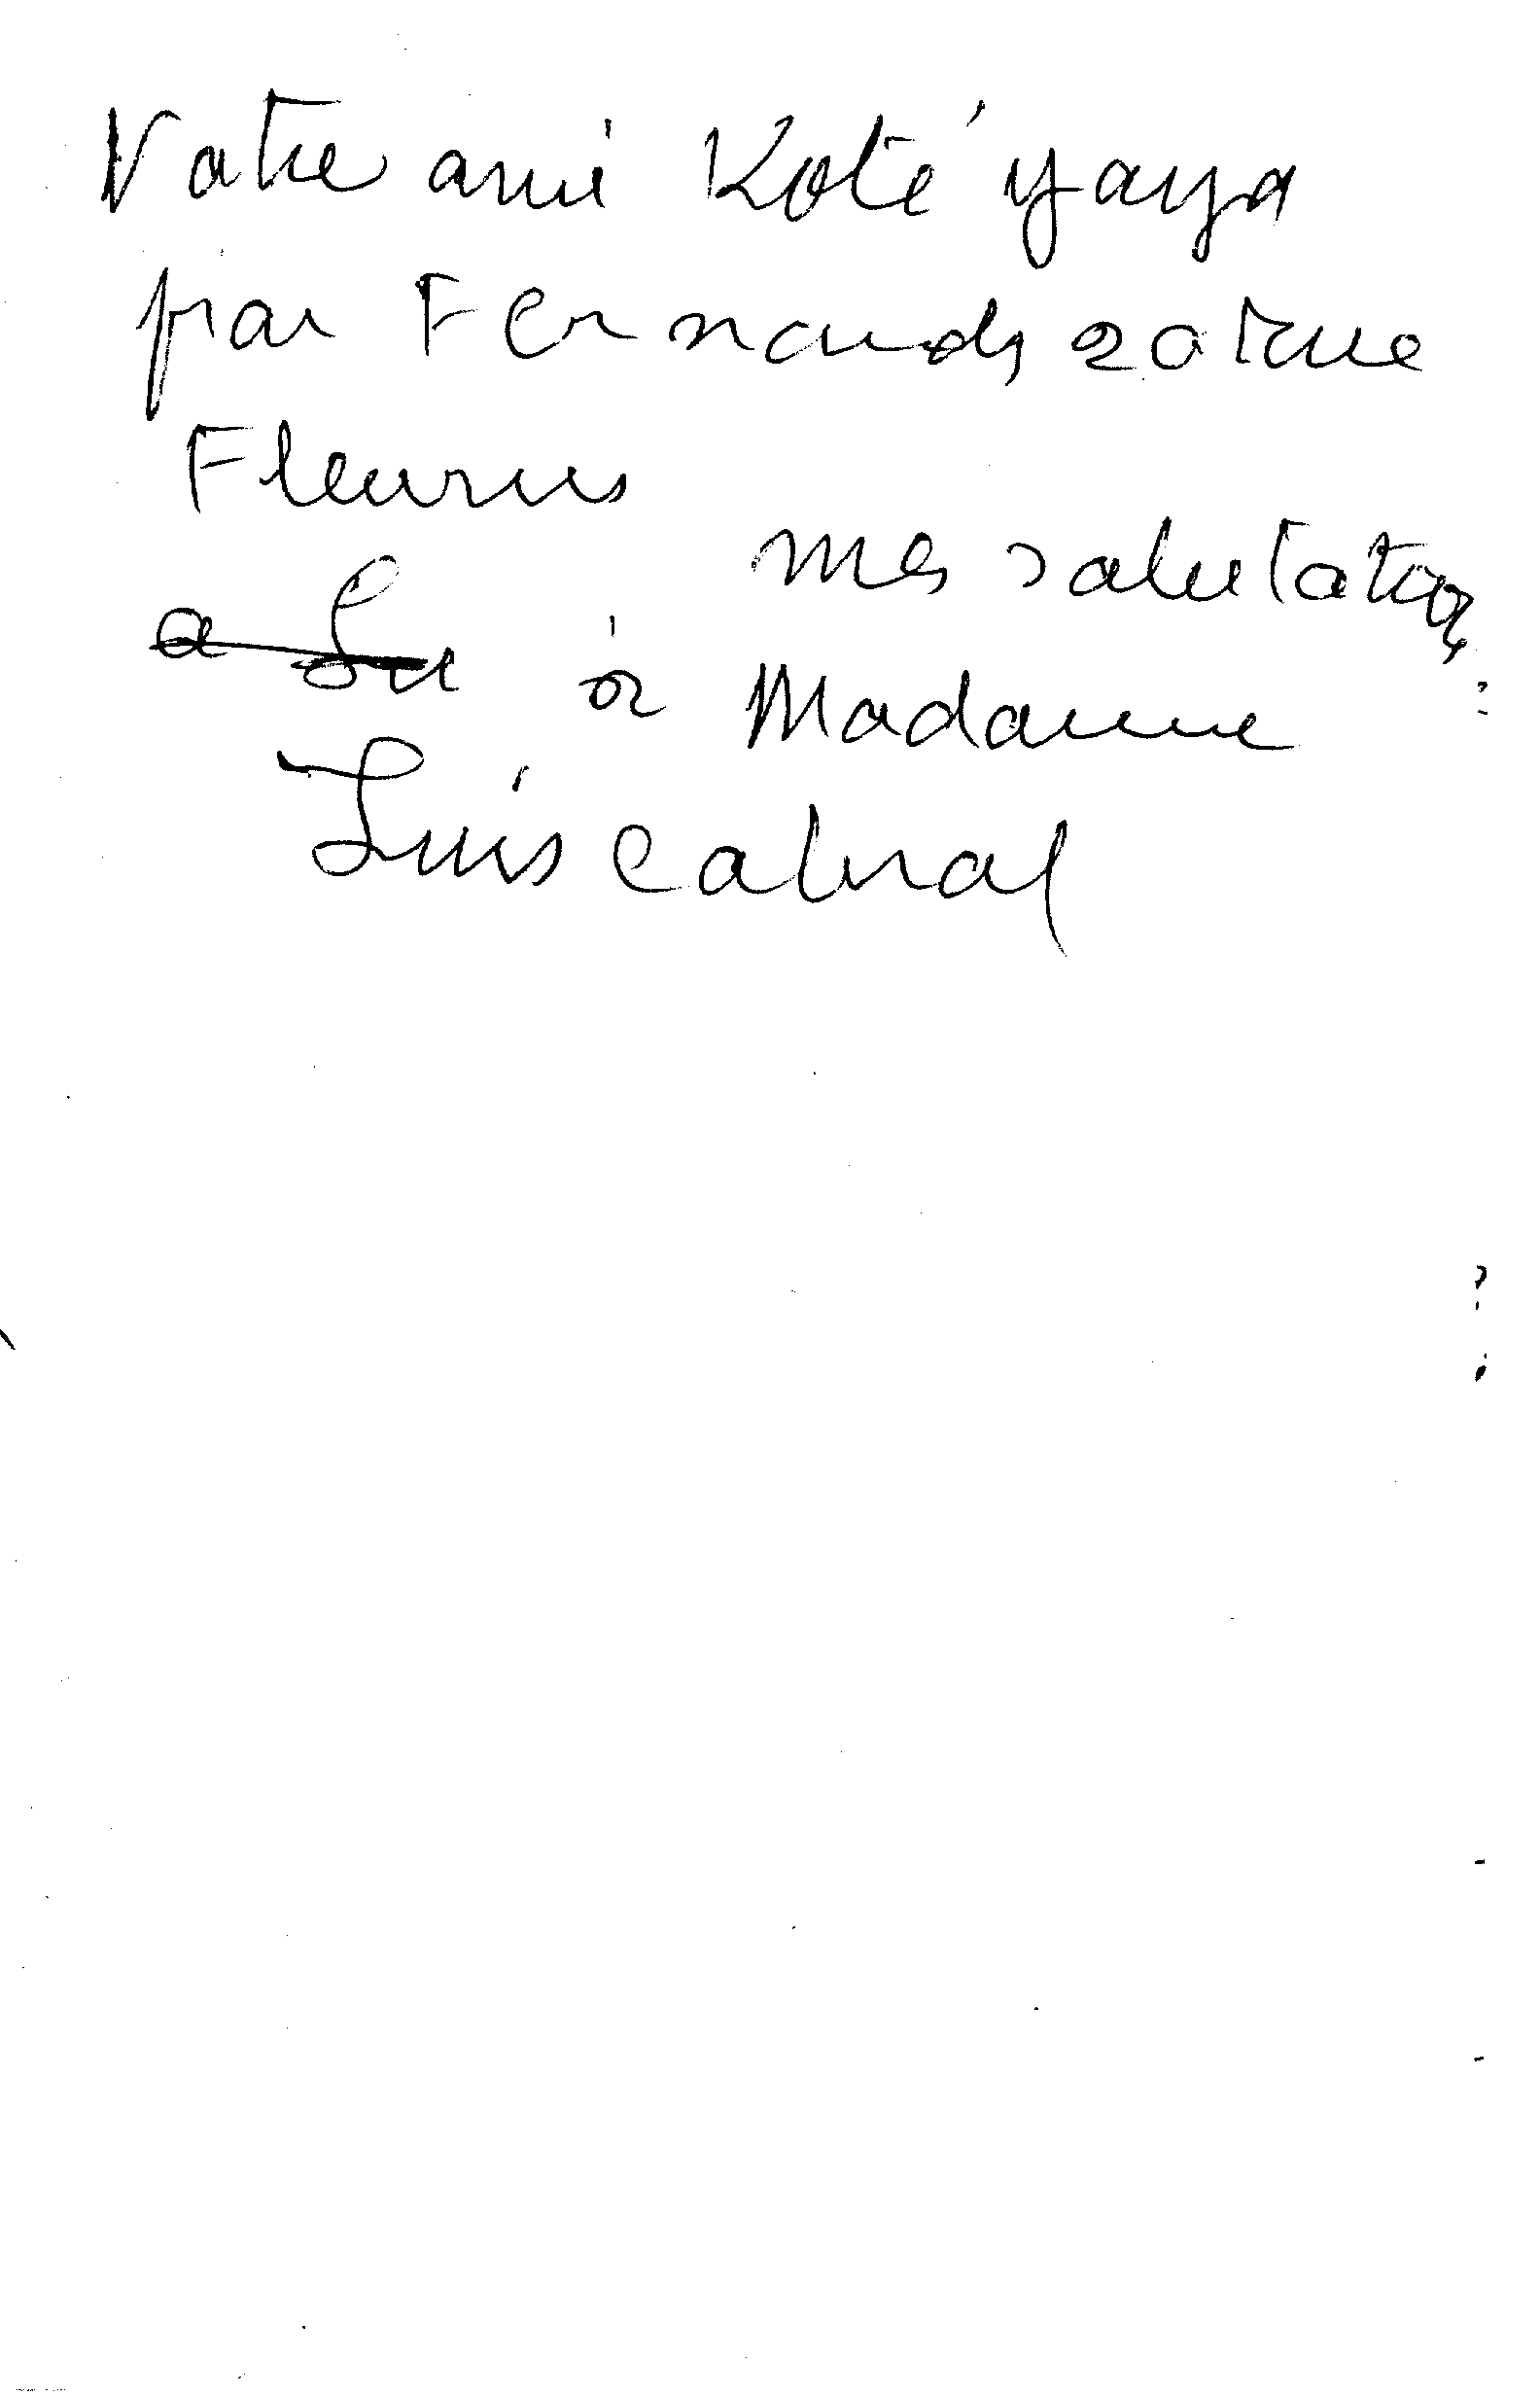 Votre ami Koté yaya
par Fernands 20 rue
Fleurus
mes salutations
a Lu à Madame
Luis Cabral